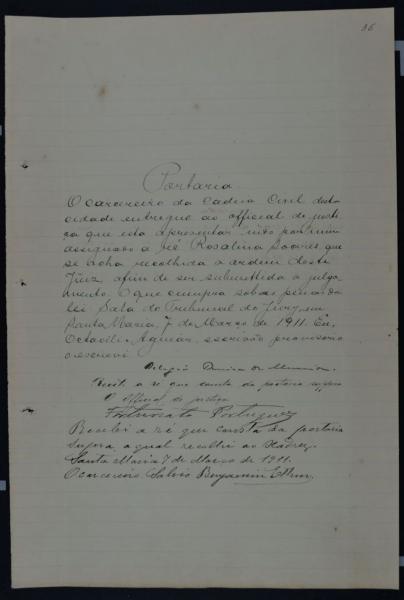 86
Portaria
O carcereiro da Cadeia Civil desta
cidade entregue ao official de justi
ça que esta apresentar indo por mim
assignado a ré Rosalina Soares, que
se acha recolhida a ordem deste
Juiz, afim de ser submettida a julga
mento. O que cumpra sob as penas da
lei. Sala do Tribunal do Jury, em
Santa Maria, 7 de Março de 1911. Eu,
Octavilio Aguiar, escrivão provisorio
o escrevi
Recebi a ré que consta da portaria supra
O official de justiça
Fortunato Portuguez
Recebi a ré que consta da portaria
supra a qual recolhi ao Xadrez.
Santa Maria 7 de Março de 1911.
O carcereiro Salvio Benjamin